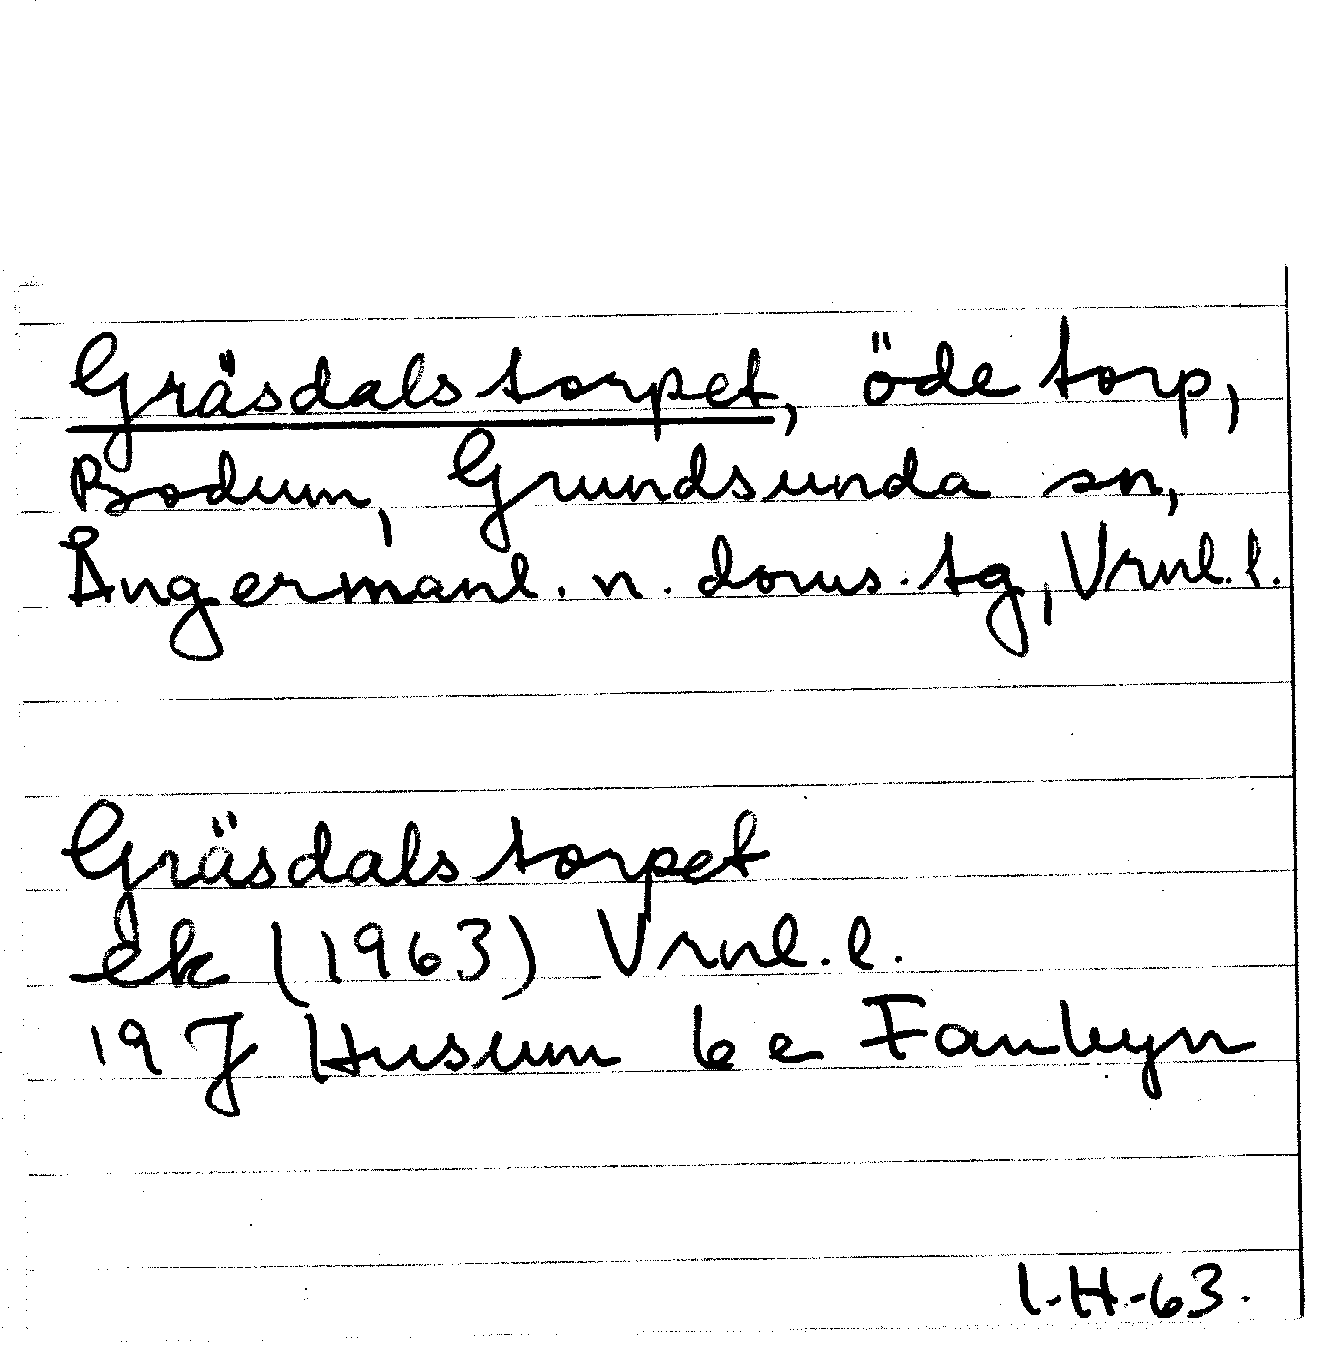 Gräsdalstorpet, öde torp,
Bodum, Grundsunda sn,
Ångermanl. n. doms. tg, Vrnl. l.
Gräsdalstorpet
ek (1963) Vrnl. l.
19 J Husum 6 e Fanbyn
I.H-63.